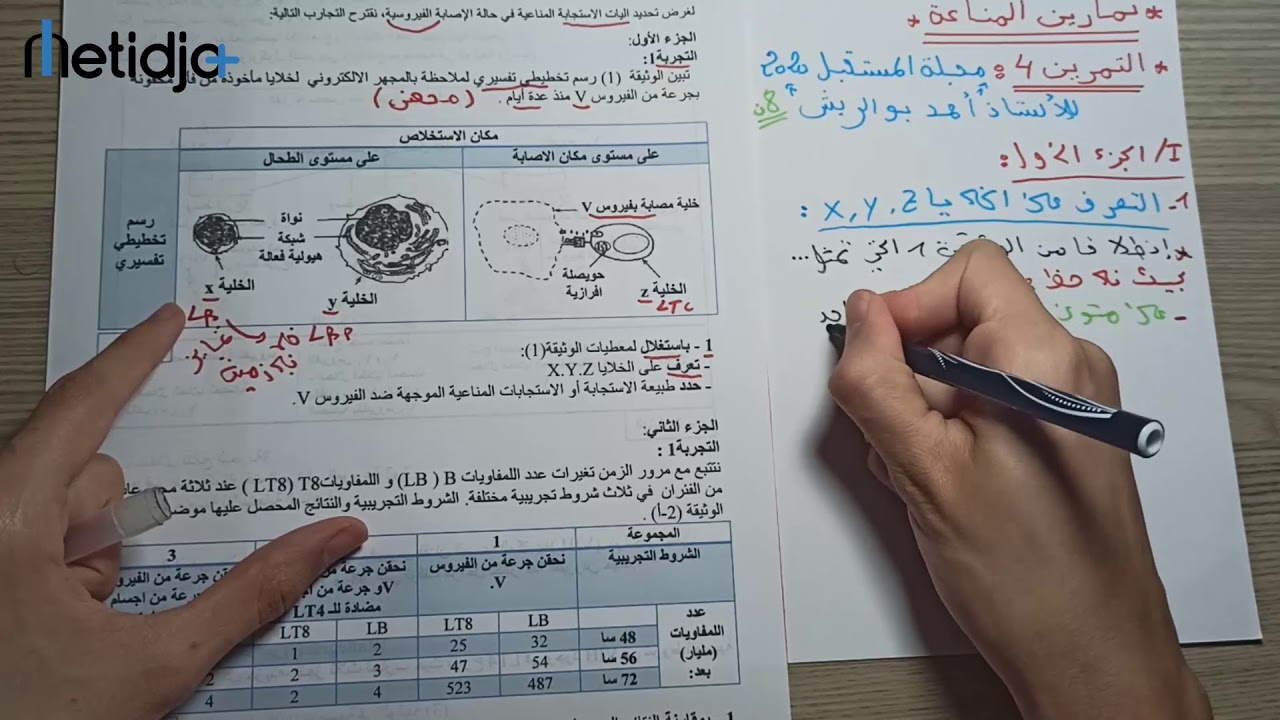 Metidja+
لغرض تحديد اليات الاستجابة المناعية في حالة الإصابة الفيروسية، نقترح التجارب التالية:
الجزء الأول:
التجربة1:
تبين الوثيقة (1) رسم تخطيطي تفسيري لملاحظة بالمجهر الالكتروني لخلايا مأخوذة من
بجرعة من الفيروس V منذ عدة أيام .
مكان الاستخلاص
على مستوى مكان الاصابة
على مستوى الطحال
رسم
تخطيطي
تفسيري
خلية مصابة بفيروس V
حويصلة
افرازية
الخلية
z
LTC
نواة
شبكة
هيولية فعالة
الخلية y
الخلية x
LB
LBP
1 - باستغلال لمعطيات الوثيقة(1):
- تعرف على الخلايا X.Y.Z
- حدد طبيعة الاستجابة أو الاستجابات المناعية الموجهة ضد الفيروس V.
الجزء الثاني:
التجربة1 :
نتتبع مع مرور الزمن تغيرات عدد اللمفاويات B ( LB) و اللمفاوياتT8 (LT8 ) عند ثلاثة
من الفئران في ثلاث شروط تجريبية مختلفة. الشروط التجريبية والنتائج المحصل عليها
الوثيقة (2-أ) .
المجموعة
1
3
الشروط التجريبية
نحقن جرعة من الفيروس
V.
نحقن جرعة من
Vو جرعة من
مضادة للـ LT4
نحقن جرعة من الفيرو
جرعة من اجسام
عدد
اللمفاويات
(مليار)
بعد:
LB
LT8
LB
LT8
48 سا
32
25
2
1
56 سا
54
47
3
2
2
72 سا
487
523
4
2
4
* تمارين المناعة
* التمرين 4 : مجلة المستقبل 2020
للأستاذ أحمد بوالريش
I/ الجزء الأول:
1- التعرف على الخلايا X, Y, Z :